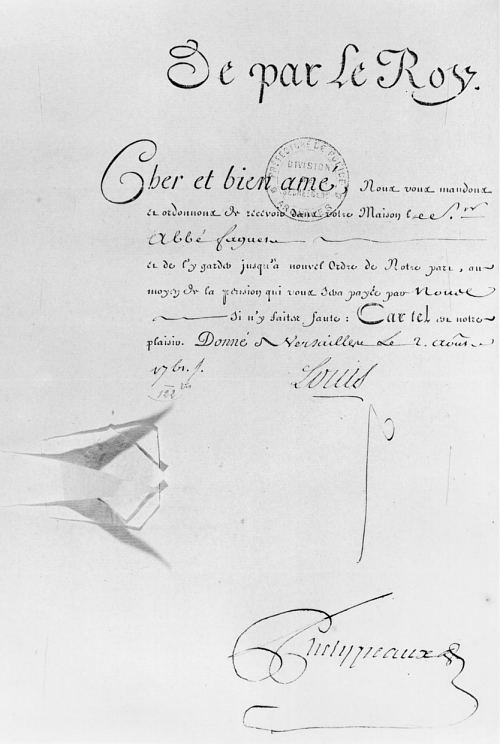 De par Le Roy.
Cher et bien amé, Nous vous mandons
et ordonnons de recevoir dans votre Maison le S.r
Abbé faguet
et de l'y garder jusqu'à nouvel Ordre de Notre part, au
moyen de la pension qui vous sera payée par Nous
Si n'y faites faute: Car tel est notre
plaisir. Donné à Versailles Le 2. aoûst
1761.
Louis
122
Phelypeaux
PREFECTURE DE POLICE
DIVISION
ARCHIVES